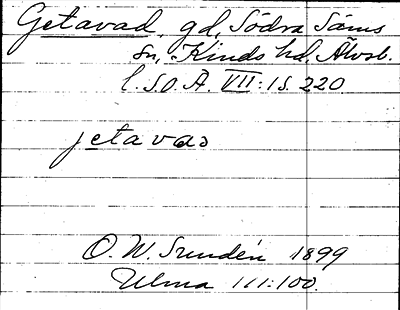 Getavad, gd, Södra Säms
sn, Kinds hd, Älvsb.
l. S.O.Ä. VII:1 S. 220
jetavad
O. W. Sundén 1899
Ulma 111:100.